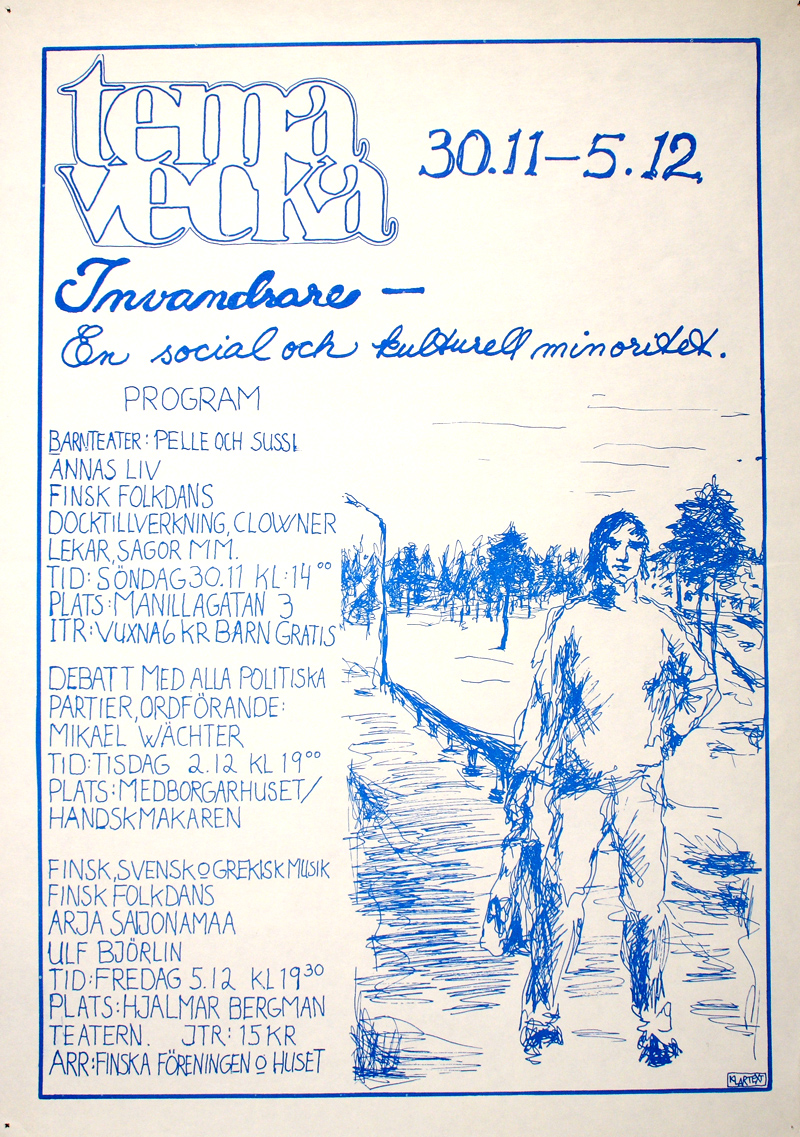 tema
vecka
30.11–5.12.
Invandrare –
En social och kulturell minoritet.
PROGRAM
BARNTEATER: PELLE OCH SUSSI
ANNAS LIV
FINSK FOLKDANS
DOCKTILLVERKNING, CLOWNER
LEKAR, SAGOR MM.
TID: SÖNDAG 30.11 KL: 14⁰⁰
PLATS: MANILLAGATAN 3
ITR: VUXNA 6 KR BARN GRATIS
DEBATT MED ALLA POLITISKA
PARTIER, ORDFÖRANDE:
MIKAEL WÄCHTER
TID: TISDAG 2.12 KL 19⁰⁰
PLATS: MEDBORGARHUSET/
HANDSKMAKAREN
FINSK, SVENSK O GREKISK MUSIK
FINSK FOLKDANS
ARJA SAIJONAMAA
ULF BJÖRLIN
TID: FREDAG 5.12 KL 19³⁰
PLATS: HJALMAR BERGMAN
TEATERN. JTR: 15 KR
ARR: FINSKA FÖRENINGEN O HUSET
KLARTEXT